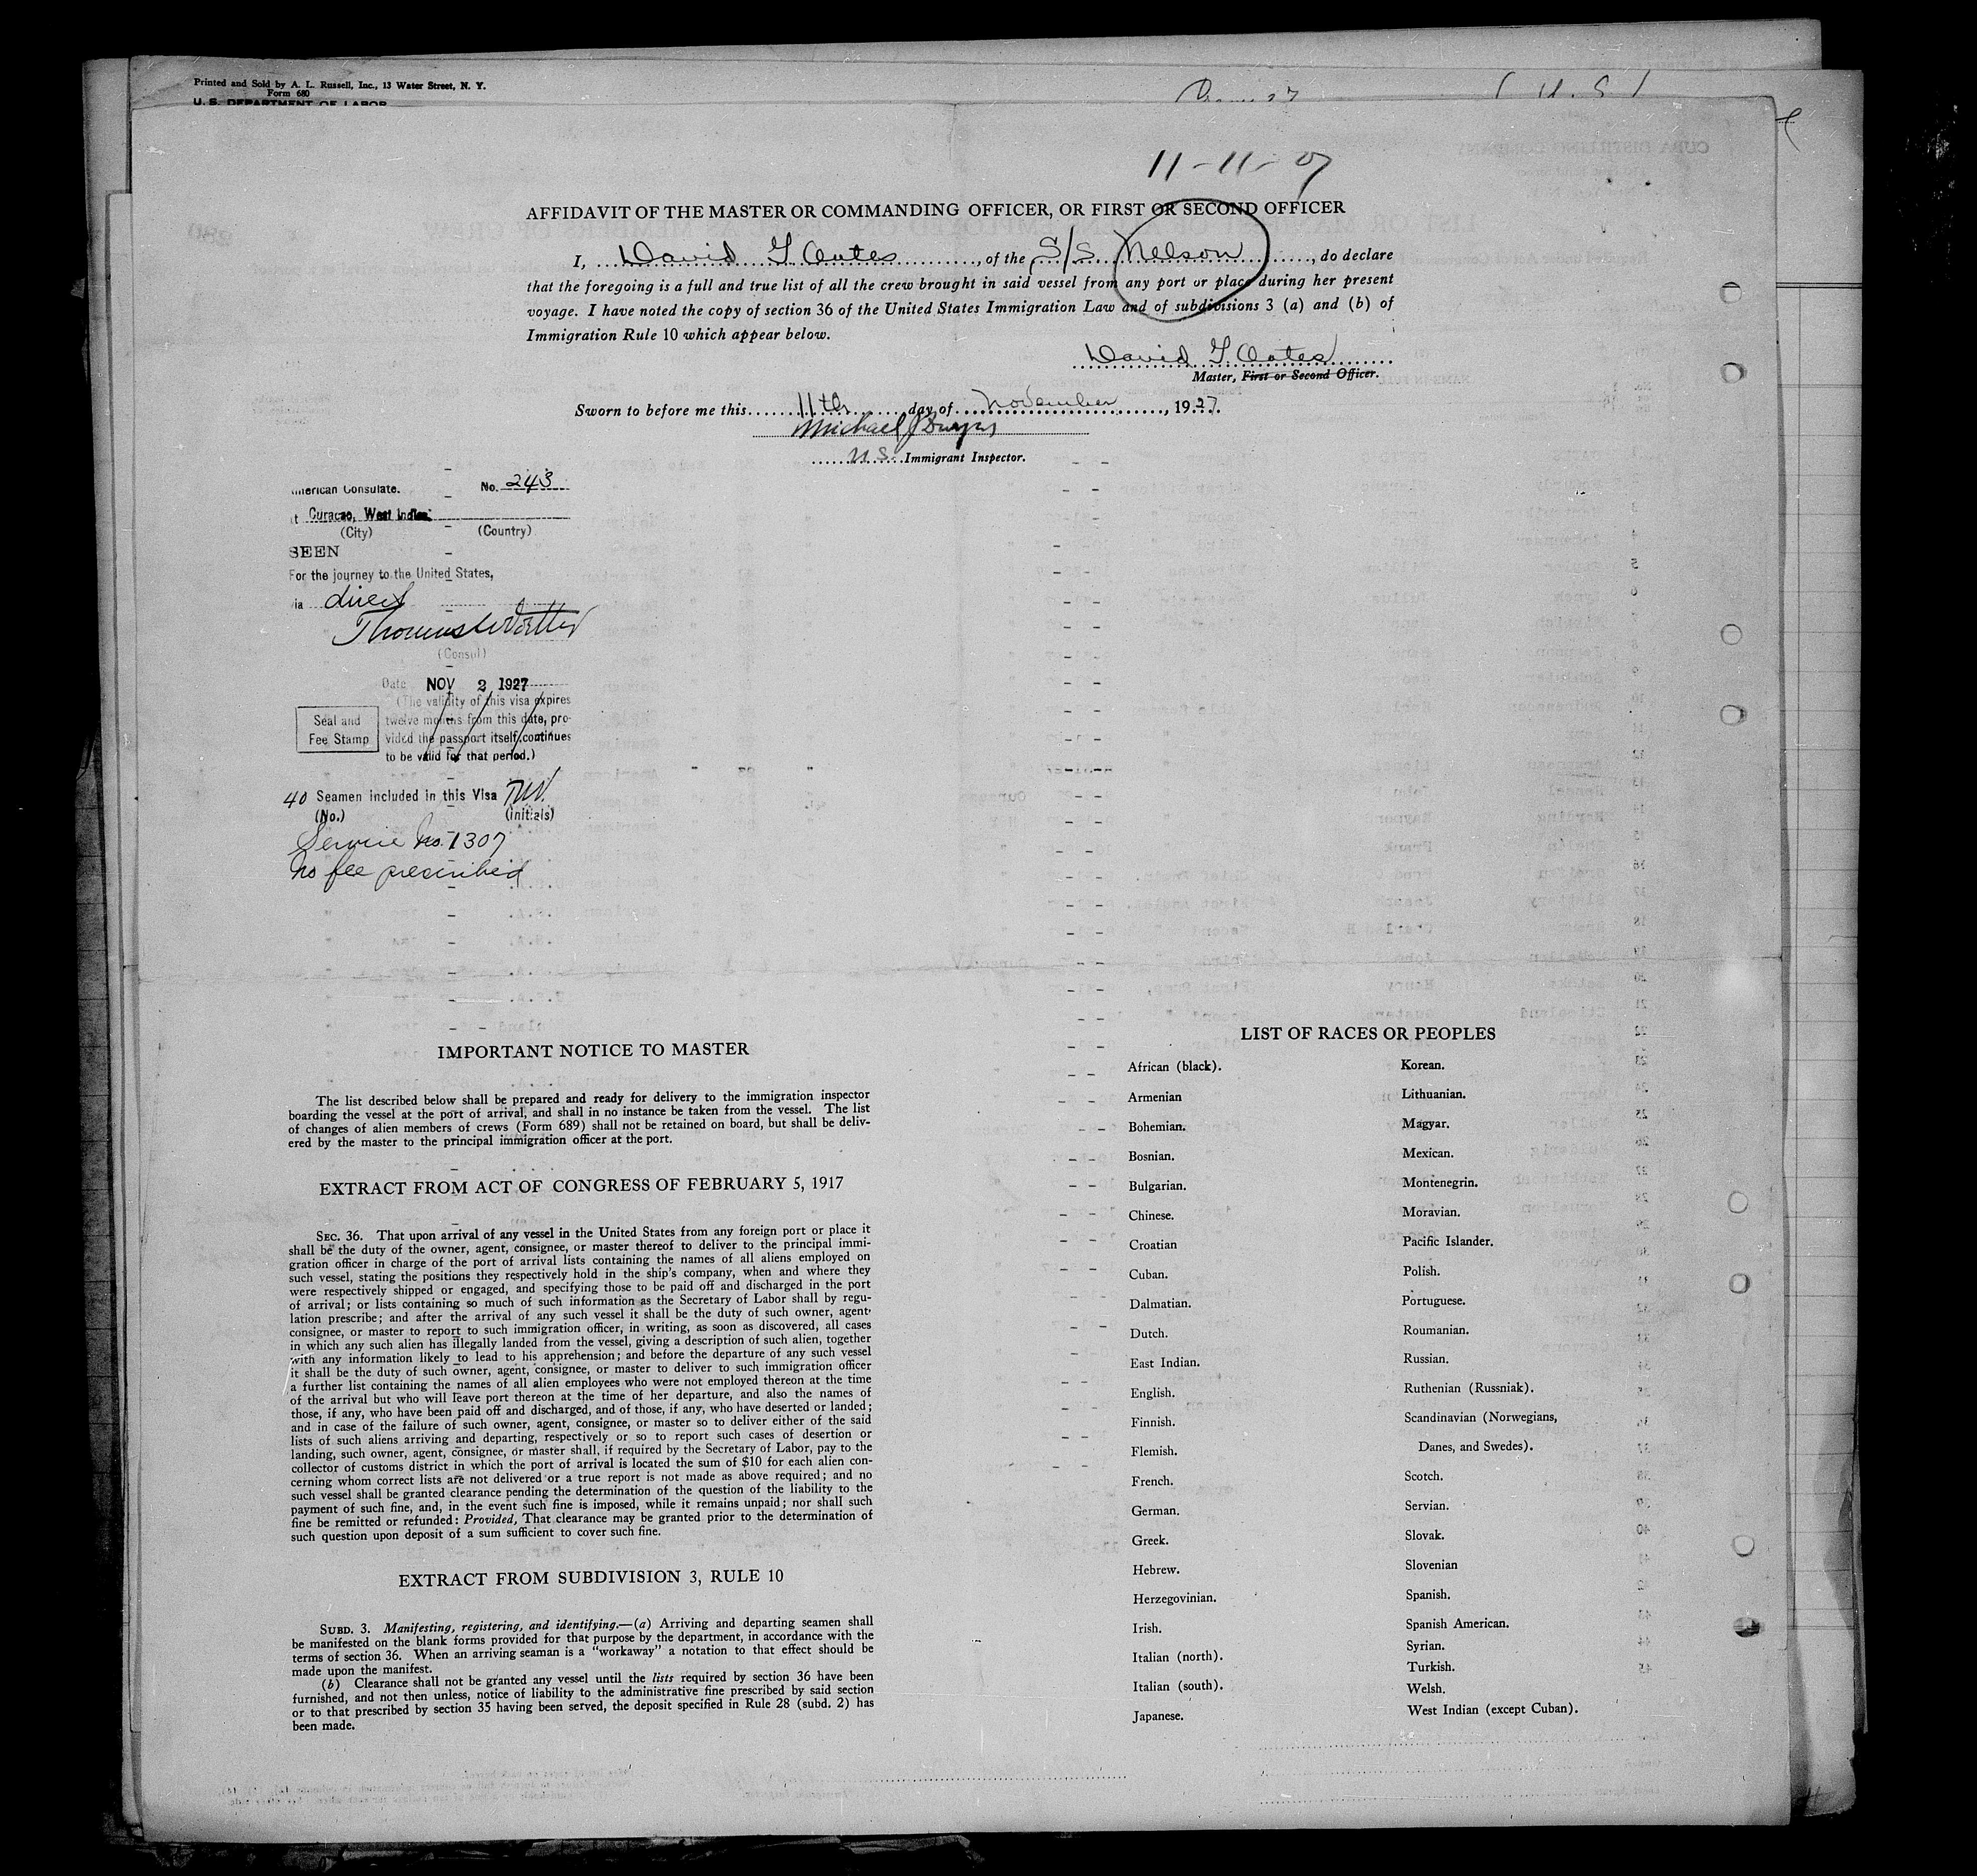 Printed and Sold by A. L. Russell, Inc., 13 Water Street, N. Y.
Form 680
U. S. DEPARTMENT OF LABOR
11-11-27
AFFIDAVIT OF THE MASTER OR COMMANDING OFFICER, OR FIRST OR SECOND OFFICER
I, David G Oates, of the S/S Nelson, do declare
that the foregoing is a full and true list of all the crew brought in said vessel from any port or place during her present
voyage. I have noted the copy of section 36 of the United States Immigration Law and of subdivisions 3 (a) and (b) of
Immigration Rule 10 which appear below.
David G Oates
Master, First or Second Officer.
Sworn to before me this 11th day of November, 1927.
Michael J
U.S. Immigrant Inspector.
American Consulate. No. 243
at Curacao, West Indies.
(City) (Country)
SEEN
For the journey to the United States,
via direct
(Consul)
Date NOV 2 1927
(The validity of this visa expires
twelve months from this date, pro-
vided the passport itself continues
to be valid for that period.)
Seal and
Fee Stamp
40 Seamen included in this Visa
(No.) (Initials)
Service No. 1307
No fee prescribed
IMPORTANT NOTICE TO MASTER
The list described below shall be prepared and ready for delivery to the immigration inspector
boarding the vessel at the port of arrival, and shall in no instance be taken from the vessel. The list
of changes of alien members of crews (Form 689) shall not be retained on board, but shall be deliv-
ered by the master to the principal immigration officer at the port.
EXTRACT FROM ACT OF CONGRESS OF FEBRUARY 5, 1917
SEC. 36. That upon arrival of any vessel in the United States from any foreign port or place it
shall be the duty of the owner, agent, consignee, or master thereof to deliver to the principal immi-
gration officer in charge of the port of arrival lists containing the names of all aliens employed on
such vessel, stating the positions they respectively hold in the ship's company, when and where they
were respectively shipped or engaged, and specifying those to be paid off and discharged in the port
of arrival; or lists containing so much of such information as the Secretary of Labor shall by regu-
lation prescribe; and after the arrival of any such vessel it shall be the duty of such owner, agent,
consignee, or master to report to such immigration officer, in writing, as soon as discovered, all cases
in which any such alien has illegally landed from the vessel, giving a description of such alien, together
with any information likely to lead to his apprehension; and before the departure of any such vessel
it shall be the duty of such owner, agent, consignee, or master to deliver to such immigration officer
a further list containing the names of all alien employees who were not employed thereon at the time
of the arrival but who will leave port thereon at the time of her departure, and also the names of
those, if any, who have been paid off and discharged, and of those, if any, who have deserted or landed;
and in case of the failure of such owner, agent, consignee, or master so to deliver either of the said
lists of such aliens arriving and departing, respectively or so to report such cases of desertion or
landing, such owner, agent, consignee, or master shall, if required by the Secretary of Labor, pay to the
collector of customs district in which the port of arrival is located the sum of $10 for each alien con-
cerning whom correct lists are not delivered or a true report is not made as above required; and no
such vessel shall be granted clearance pending the determination of the question of the liability to the
payment of such fine, and, in the event such fine is imposed, while it remains unpaid; nor shall such
fine be remitted or refunded: Provided, That clearance may be granted prior to the determination of
such question upon deposit of a sum sufficient to cover such fine.
EXTRACT FROM SUBDIVISION 3, RULE 10
SUBD. 3. Manifesting, registering, and identifying.—(a) Arriving and departing seamen shall
be manifested on the blank forms provided for that purpose by the department, in accordance with the
terms of section 36. When an arriving seaman is a "workaway" a notation to that effect should be
made upon the manifest.
(b) Clearance shall not be granted any vessel until the lists required by section 36 have been
furnished, and not then unless, notice of liability to the administrative fine prescribed by said section
or to that prescribed by section 35 having been served, the deposit specified in Rule 28 (subd. 2) has
been made.
LIST OF RACES OR PEOPLES
African (black).
Armenian
Bohemian.
Bosnian.
Bulgarian.
Chinese.
Croatian
Cuban.
Dalmatian.
Dutch.
East Indian.
English.
Finnish.
Flemish.
French.
German.
Greek.
Hebrew.
Herzegovinian.
Irish.
Italian (north).
Italian (south).
Japanese.
Korean.
Lithuanian.
Magyar.
Mexican.
Montenegrin.
Moravian.
Pacific Islander.
Polish.
Portuguese.
Roumanian.
Russian.
Ruthenian (Russniak).
Scandinavian (Norwegians,
Danes, and Swedes).
Scotch.
Servian.
Slovak.
Slovenian
Spanish.
Spanish American.
Syrian.
Turkish.
Welsh.
West Indian (except Cuban).